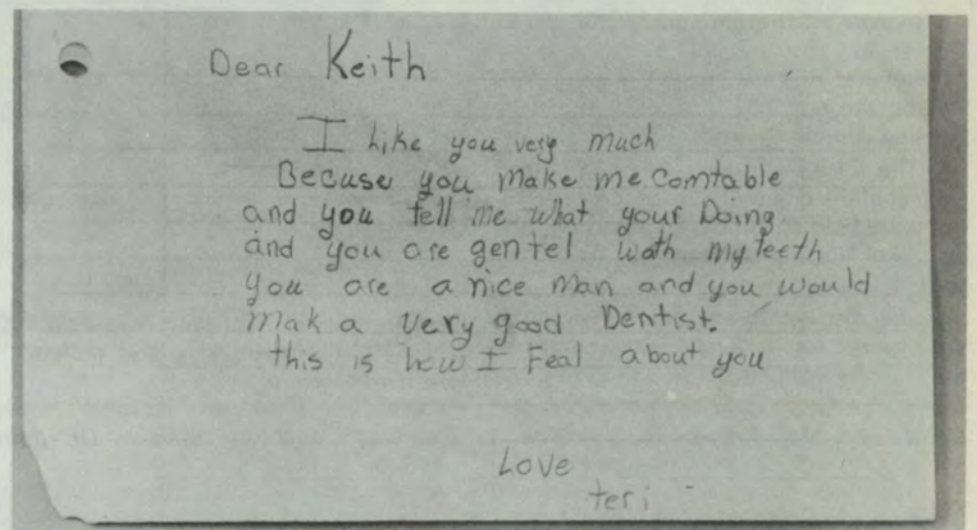 Dear Keith
I like you very much
Becuse you make me Comtable
and you tell me what your Doing
and you are gentel wath my teeth
you are a nice man and you would
mak a very good Dentist.
this is how I Feal about you
Love
teri